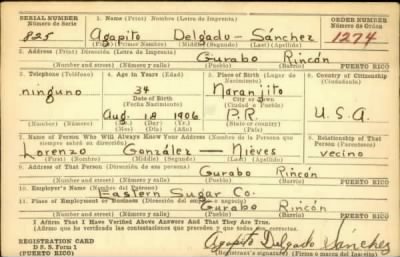 SERIAL NUMBER 1. Name (Print) Nombre (Letra de Imprenta) ORDER NUMBER
Número de Serie Número de Orden
825 Agapito Delgado - Sánchez 1274
(First) (Primer Nombre) (Middle) (Segundo) (Last) (Apellido)
2. Address (Print) Dirección (Letra de Imprenta)
Gurabo Rincón
PUERTO RICO
3. Telephone (Teléfono) 4. Age in Years (Edad) 5. Place of Birth (Lugar de Nacimiento) 6. Country of Citizenship (Ciudadanía)
ninguno 34 Naranjito
Date of Birth (Fecha Nacimiento) City or Town (Ciudad o Pueblo)
Aug. 18 1906 P.R. U.S.A.
(Mo.) (Day) (Yr.) (State or country)
(Mes) (Día) (Año) (Estado o país)
7. Name of Person Who Will Always Know Your Address (Nombre de la Persona que siempre sabrá su dirección) 8. Relationship of That Person (Parentesco)
Lorenzo González - Nieves vecino
(First) (Nombre) (Middle) (Segundo) (Last) (Apellido)
9. Address of That Person (Dirección de esa persona)
Gurabo Rincón
PUERTO RICO
10. Employer's Name (Nombre del Patrono)
Eastern Sugar Co.
11. Place of Employment or Business (Dirección del empleo)
Gurabo Rincón
PUERTO RICO
I Affirm That I Have Verified Above Answers And That They Are True.
(Afirmo que he verificado las contestaciones que preceden y que son ciertas.)
REGISTRATION CARD
D. S. S. Form 1
(PUERTO RICO)
Agapito Delgado Sánchez
(Registrant's signature) (Firma o marca del inscrito)